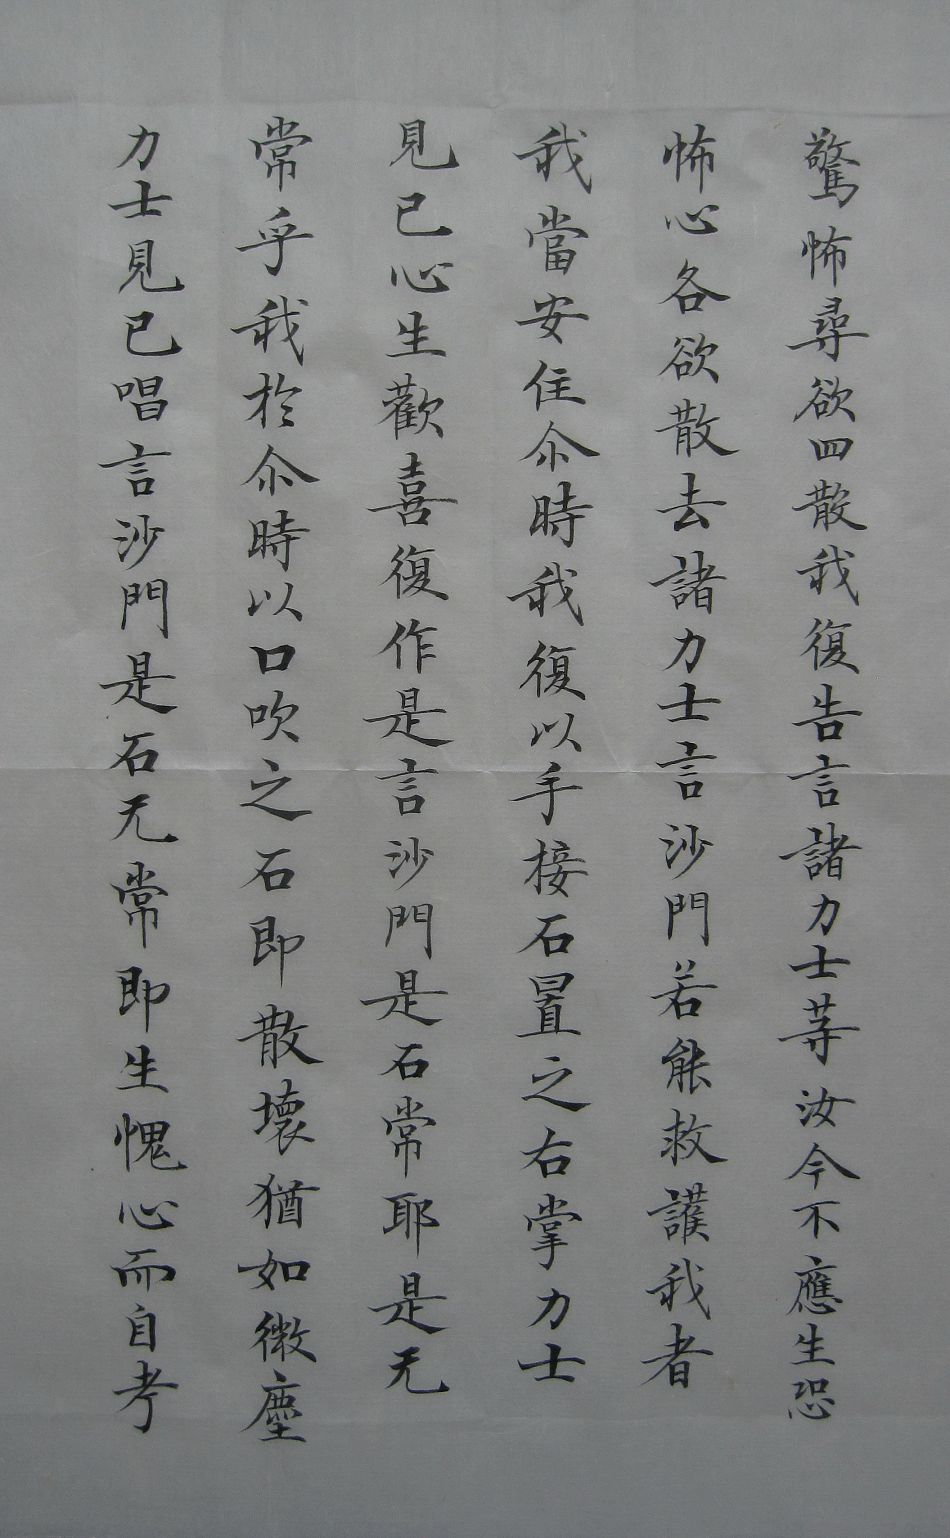 驚怖尋欲四散我復告言諸力士等汝今不應生恐
怖心各欲散去諸力士言沙門若能救護我者
我當安住尒時我復以手接石置之右掌力士
見已心生歡喜復作是言沙門是石常耶是无
常乎我於尒時以口吹之石即散壞猶如微塵
力士見已唱言沙門是石无常即生愧心而自考